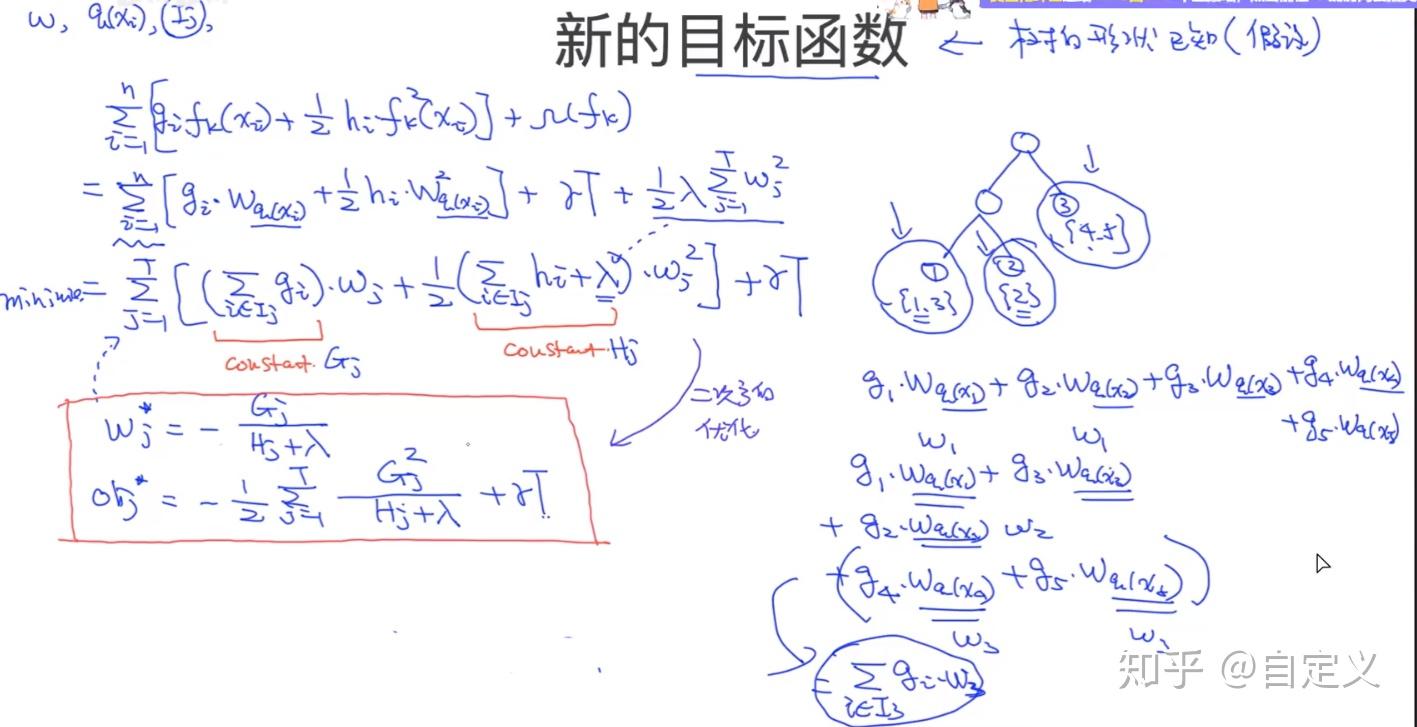 w, q(xᵢ), Iⱼ,
新的目标函数
← 树的形状已知(假设)
∑ᵢ₌₁ⁿ [gᵢ fₖ(xᵢ) + 1/2 hᵢ fₖ²(xᵢ)] + Ω(fₖ)
= ∑ᵢ₌₁ⁿ [gᵢ · w_q(xᵢ) + 1/2 hᵢ · w²_q(xᵢ)] + γT + 1/2 λ ∑ⱼ₌₁ᵀ wⱼ²
= ∑ⱼ₌₁ᵀ [(∑_{i∈Iⱼ} gᵢ) · wⱼ + 1/2 (∑_{i∈Iⱼ} hᵢ + λ) · wⱼ²] + γT
constant Gⱼ
constant Hⱼ
二次方的
优化
wⱼ* = - Gⱼ / (Hⱼ + λ)
obj* = - 1/2 ∑ⱼ₌₁ᵀ Gⱼ² / (Hⱼ + λ) + γT
③
{4,5}
①
{1,3}
②
{2}
g₁ · w_q(x₁) + g₂ · w_q(x₂) + g₃ · w_q(x₃) + g₄ · w_q(x₄)
+ g₅ · w_q(x₅)
w₁ w₁
g₁ · w_q(x₁) + g₃ · w_q(x₃)
+ g₂ · w_q(x₂) w₂
+ (g₄ · w_q(x₄) + g₅ · w_q(x₅))
w₃ w₃
= ∑_{i∈I₃} gᵢ · w₃
知乎 @自定义